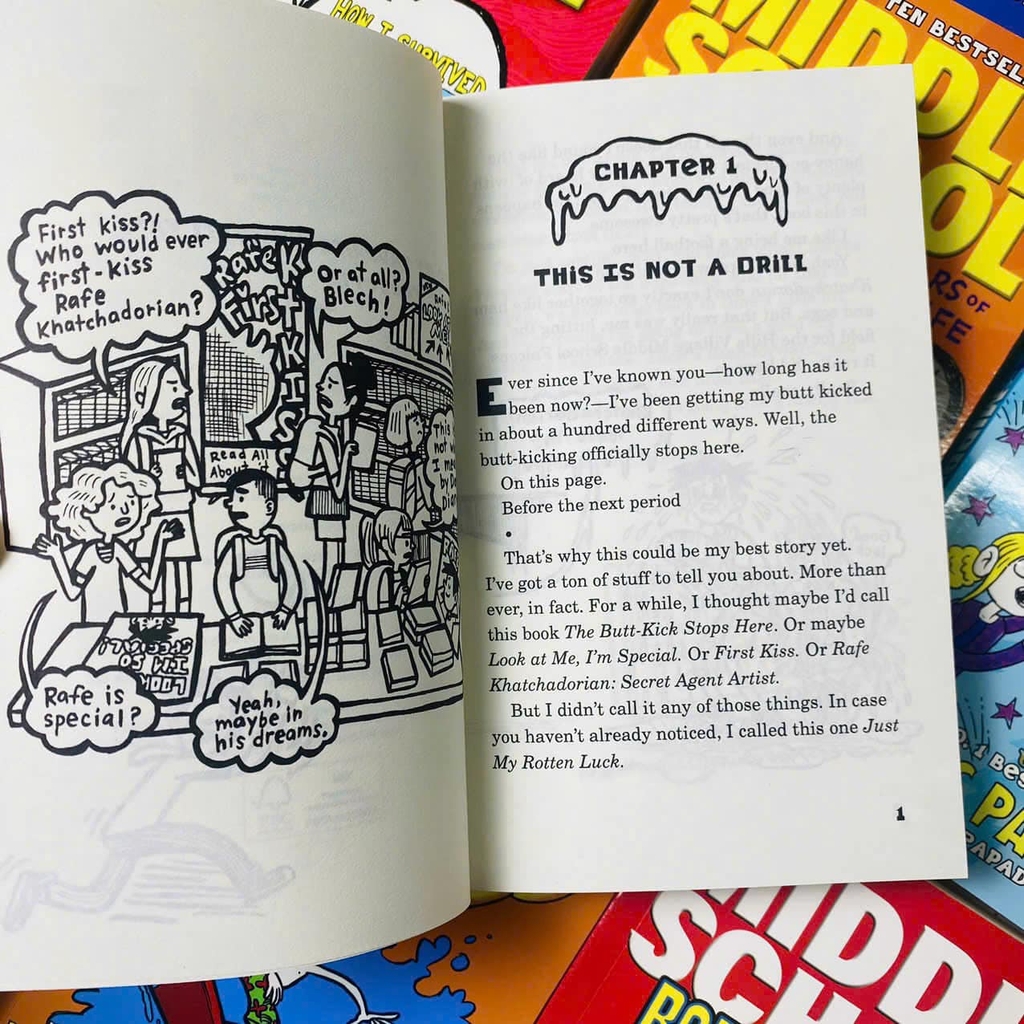 HOW I SURVIVED
TEN BESTSEL
MIDDL
SC
OL
RS OF
FE
First kiss?!
Who would ever
first-kiss
Rafe
Khatchadorian?
Rafe K
First
KISS
Or at all?
Blech!
Read All
About it
This
not w
I me
by D
Dia
LOOK
I'M SO
SPECIAL!
Rafe is
special?
Yeah,
maybe in
his dreams.
CHAPTER 1
THIS IS NOT A DRILL
Ever since I've known you—how long has it
been now?—I've been getting my butt kicked
in about a hundred different ways. Well, the
butt-kicking officially stops here.
On this page.
Before the next period
•
That's why this could be my best story yet.
I've got a ton of stuff to tell you about. More than
ever, in fact. For a while, I thought maybe I'd call
this book The Butt-Kick Stops Here. Or maybe
Look at Me, I'm Special. Or First Kiss. Or Rafe
Khatchadorian: Secret Agent Artist.
But I didn't call it any of those things. In case
you haven't already noticed, I called this one Just
My Rotten Luck.
1
O. 1 BES
PA
PAPAD
MIDDL
SCH